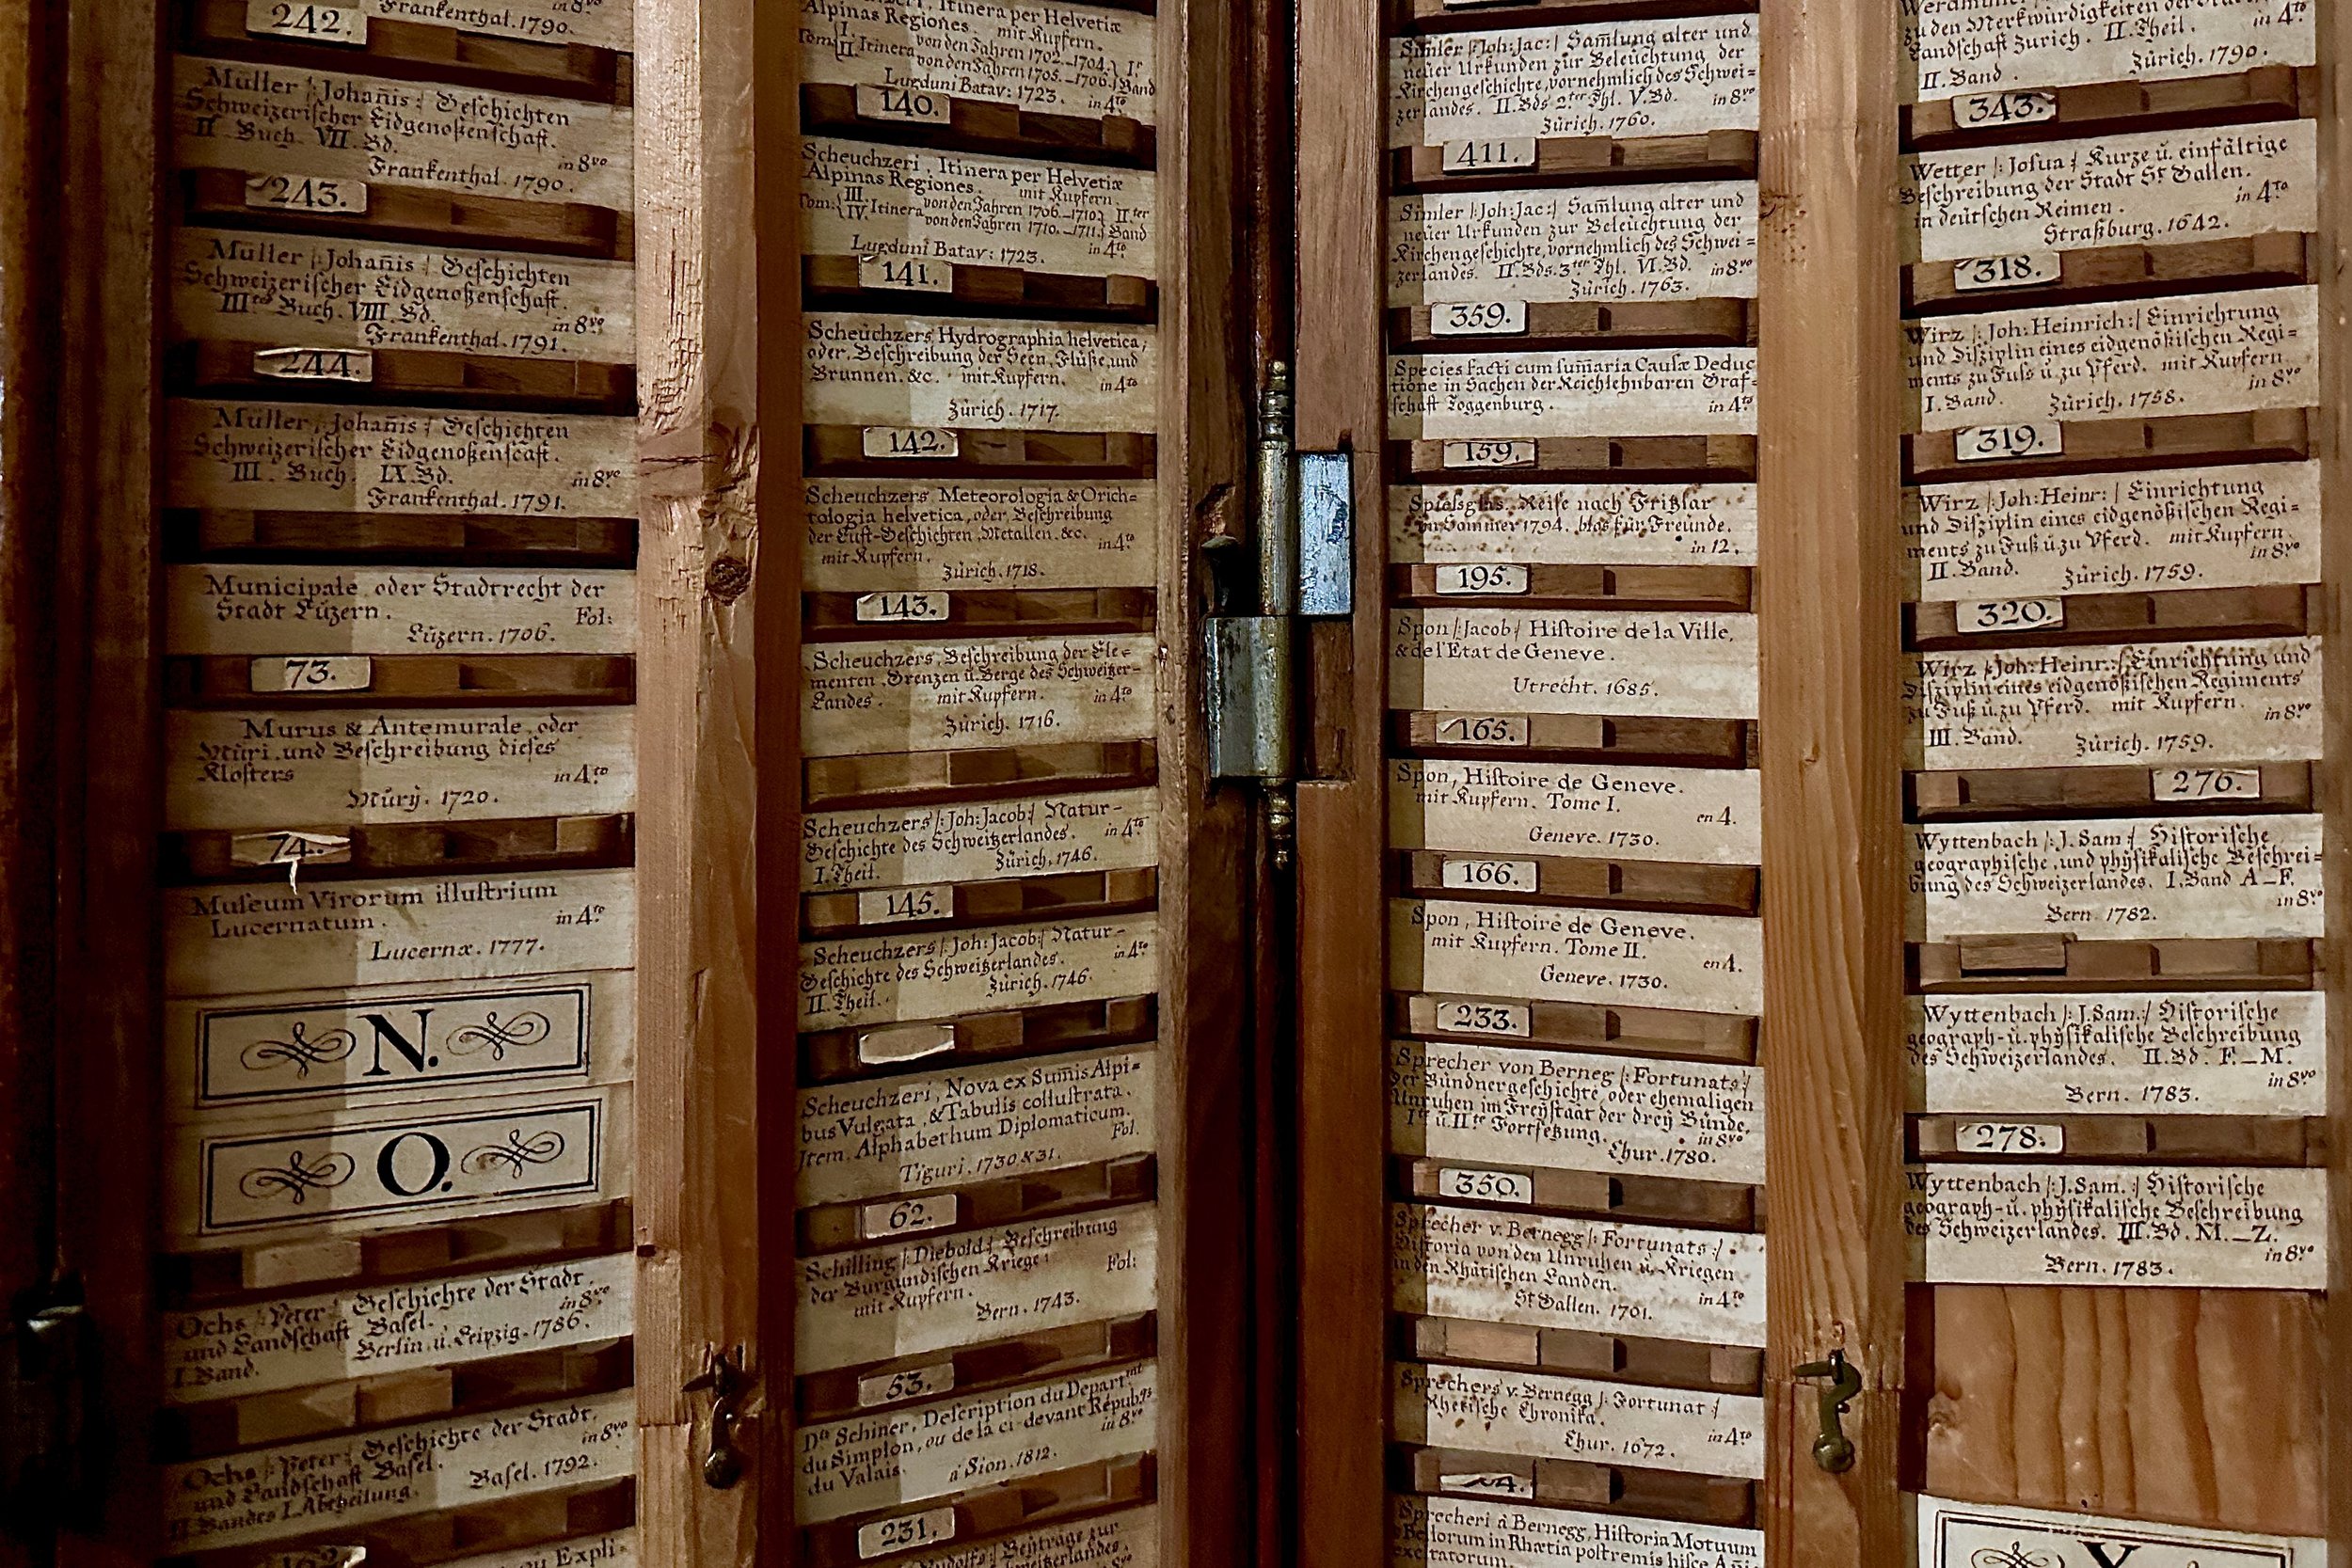 242.
Frankenthal. 1790.
in 8vo
Müller /: Joham̄is :/ Geschichten
Schweizerischer Eidgenoßenschaft.
II Buch. VII. Bd.
in 8vo
Frankenthal. 1790.
243.
Müller /: Johan̄is :/ Geschichten
Schweizerischer Eidgenoßenschaft.
IIItes Buch. VIII. Bd.
in 8vo
Frankenthal. 1791.
244.
Müller /: Johan̄is :/ Geschichten
Schweizerischer Eidgenoßenscaft.
III. Buch. IX. Bd.
in 8vo
Frankenthal. 1791.
Municipale, oder Stadtrecht der
Stadt Lüzern.
Fol:
Lüzern. 1706.
73.
Murus & Antemurale, oder
Mūri, und Beschreibung dieses
Klosters
in 4to
Mūrÿ. 1720.
74.
Museum Virorum illustrium
Lucernatum.
in 4to
Lucernæ. 1777.
N.
O.
Ochs /: Peter :/ Geschichte der Stadt,
und Landschaft Basel.
in 8vo
I. Band.
Berlin u. Leipzig. 1786.
Ochs /: Peter :/ Geschichte der Stadt,
und Landschaft Basel.
in 8vo
II. Bandes I. Abtheilung.
Basel. 1792.
162.
Expli-
Itinera per Helvetiæ
Alpinas Regiones. mit Kupfern.
Tom: I. II. Itinera von den Jahren 1702.–1704. von den Jahren 1705.–1706. Ir Band
Lugduni Batav: 1723. in 4to
140.
Scheuchzeri, Itinera per Helvetiæ
Alpinas Regiones. mit Kupfern.
Tom: III. IV. Itinera von den Jahren 1706.–1710. von den Jahren 1710.–1711. II.ter Band
Lugduni Batav: 1723. in 4to
141.
Scheüchzers, Hydrographia helvetica,
oder, Beschreibung der Seen, Flüße, und
Brunnen. &c. mit Kupfern. in 4to
Zürich. 1717.
142.
Scheuchzers, Meteorologia & Orich=
tologia helvetica, oder, Beschreibung
der Luft-Geschichten, Metallen. &c.
mit Kupfern. in 4to
Zürich. 1718.
143.
Scheuchzers, Beschreibung der Ele=
menten, Grenzen ū. Berge des Schweitzer=
Landes. mit Kupfern. in 4to
Zürich. 1716.
Scheuchzers /: Joh: Jacob :/ Natur-
Geschichte des Schweitzerlandes. in 4to
I. Theil. Zürich, 1746.
145.
Scheuchzers /: Joh: Jacob :/ Natur-
Geschichte des Schweitzerlandes. in 4to
II. Theil. Zürich. 1746.
Scheuchzeri, Nova ex Sum̄is Alpi=
bus Vulgata, & Tabulis collustrata.
Item. Alphabethum Diplomaticum.
Fol.
Tiguri. 1730 & 31.
62.
Schilling /: Diebold :/ Beschreibung
der Burgundischen Kriege.
mit Kupfern. Fol:
Bern. 1743.
53.
Dr Schiner, Description du Departmt
du Simplon, ou de la ci-devant Républqs
du Valais. in 8vo
à Sion. 1812.
231.
Beÿträge zur
Simler /: Joh: Jac: :/ Sam̄lung alter und
neuer Urkunden zür Beleüchtung der
Kirchengeschichte, vornehmlich des Schwei=
zerlandes. II. Bds 2ter Thl. V. Bd. in 8vo
Zürich. 1760.
411.
Simler /: Joh: Jac: :/ Sam̄lung alter und
neüer Urkunden zur Beleuchtung der
Kirchengeschichte, vornehmlich des Schwei=
zerlandes. II. Bds. 3ter Thl. VI. Bd. in 8vo
Zürich. 1763.
359.
Species facti cum sum̄aria Causæ Deduc
tione in Sachen der Reichlehnbaren Graf=
schaft Toggenburg. in 4to
159.
Reise nach Fritzlar
im Sommer 1794. blos für Freunde.
in 12.
195.
Spon /: Jacob :/ Histoire de la Ville,
& de l'Etat de Geneve.
Utrecht. 1685.
165.
Spon, Histoire de Geneve.
mit Kupfern. Tome I.
en 4.
Geneve. 1730.
166.
Spon, Histoire de Geneve.
mit Kupfern. Tome II.
en 4.
Geneve. 1730.
233.
Sprecher von Berneg /: Fortunats :/
der Bündnergeschichte, oder ehemaligen
Unruhen im Freÿstaat der dreÿ Bünde,
Ite u. IIte Fortsetzung. in 8vo
Chur. 1780.
350.
Sprecher v. Bernegg /: Fortunats :/
Historia von den Unruhen ū. Kriegen
in den Rhätischen Landen. in 4to
St Gallen. 1701.
Sprechers v. Bernegg /: Fortunat :/
Rhetische Chronika.
in 4to
Chur. 1672.
Sprecheri à Bernegg, Historia Motuum
& Bellorum in Rhætia postremis hisce Añis
excitatorum.
zu den Merkwürdigkeiten der
Landschaft Zürich. II. Theil. in 4to
II. Band. Zürich. 1790.
343.
Wetter /: Josua :/ Kurze ū. einfältige
Beschreibung der Stadt St Gallen.
in deütschen Reimen. in 4to
Straßburg. 1642.
318.
Wirz /: Joh: Heinrich :/ Einrichtung
und Disziplin eines eidgenößischen Regi=
ments zu Fuss ū. zu Pferd. mit Kupfern
in 8vo
I. Band. Zürich. 1758.
319.
Wirz /: Joh: Heinr: :/ Einrichtung
und Disziplin eines eidgenößischen Regi=
ments zu Fuß ū. zu Pferd. mit Kupfern.
in 8vo
II. Band. Zürich. 1759.
320.
Wirz /: Joh: Heinr: :/ Einrichtung und
Disziplin eines eidgenößischen Regiments
zu Fuß ū. zu Pferd. mit Kupfern.
in 8vo
III. Band. Zürich. 1759.
276.
Wyttenbach /: J. Sam :/ Historische
geographische, und phÿsikalische Beschrei=
bung des Schweizerlandes. I. Band A–F.
in 8vo
Bern. 1782.
Wyttenbach /: J. Sam: :/ Historische
geograph- ū. phÿsikalische Beschreibung
des Schweizerlandes. II. Bd. F.–M.
in 8vo
Bern. 1783.
278.
Wyttenbach /: J. Sam. :/ Historische
geograph- ū. phÿsikalische Beschreibung
des Schweizerlandes. III. Bd. M.–Z.
in 8vo
Bern. 1783.